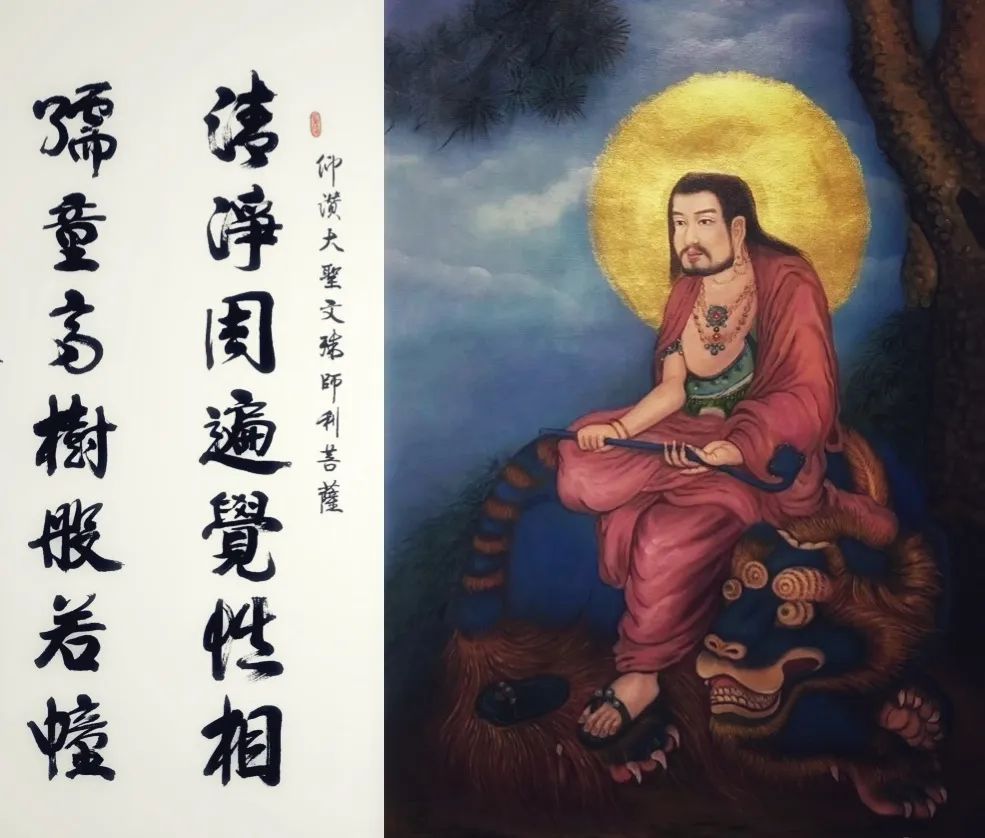 仰讚大聖文殊師利菩薩
清淨周遍覺性相
孺童高樹般若幢